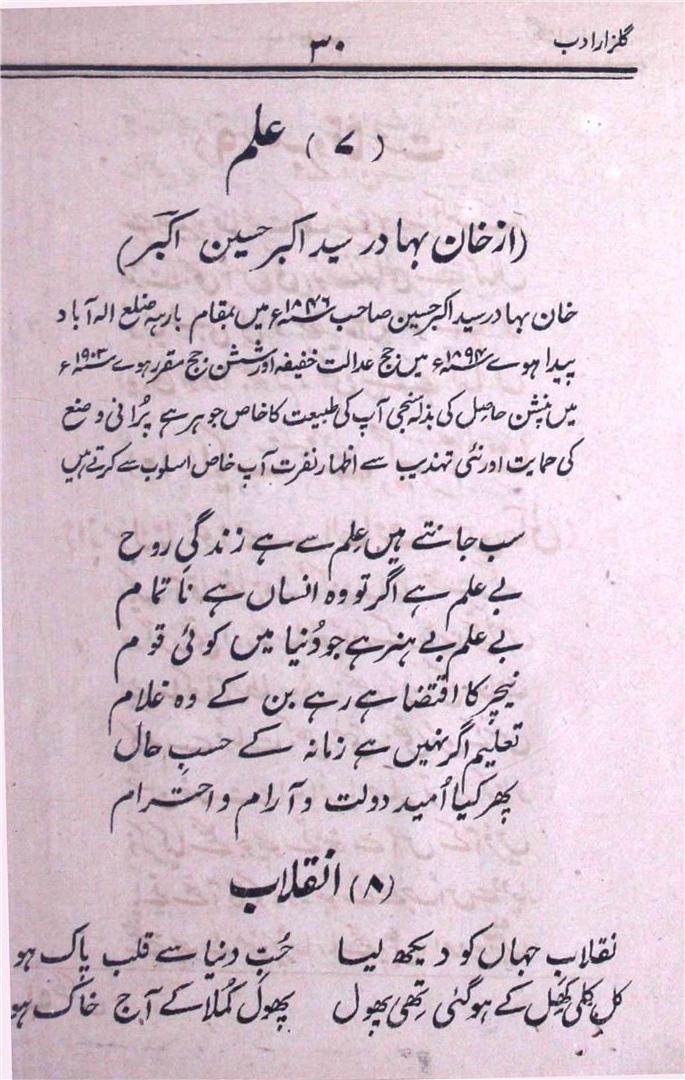 گلزار ادب
۳۰
(۷) علم
(از خان بہادر سید اکبر حسین اکبر)
خان بہادر سید اکبر حسین صاحب ۱۸۴۶ء میں بمقام بارہہ ضلع الہ آباد
پیدا ہوے ۱۸۹۴ء میں جج عدالت خفیفہ اور شسشن جج مقرر ہوے ۱۹۰۳ء
میں پنشن حاصل کی بذلہ سنجی آپ کی طبیعت کا خاص جوہر ہے پُرانی وضع
کی حمایت اور نئی تہذیب سے اظہار نفرت آپ خاص اسلوب سے کرتے ہیں
سب جانتے ہیں عِلم سے ہے زندگیِ روح
بے علم ہے اگر تو وہ انساں ہے نا تمام
بے علم بے ہنر ہے جو دُنیا میں کوئی قوم
نیچر کا اقتضا ہے رہے بن کے وہ غلام
تعلیم اگر نہیں ہے زمانہ کے حسبِ حال
پھر کیا اُمید دولت و آرام و احترام
(۸) انقلاب
نقلابِ جہاں کو دیکھ لیا حُبِّ دنیا سے قلب پاک ہو
کل کلی کھِل کے ہو گئی تھی پھول پھول کُملا کے آج خاک ہو